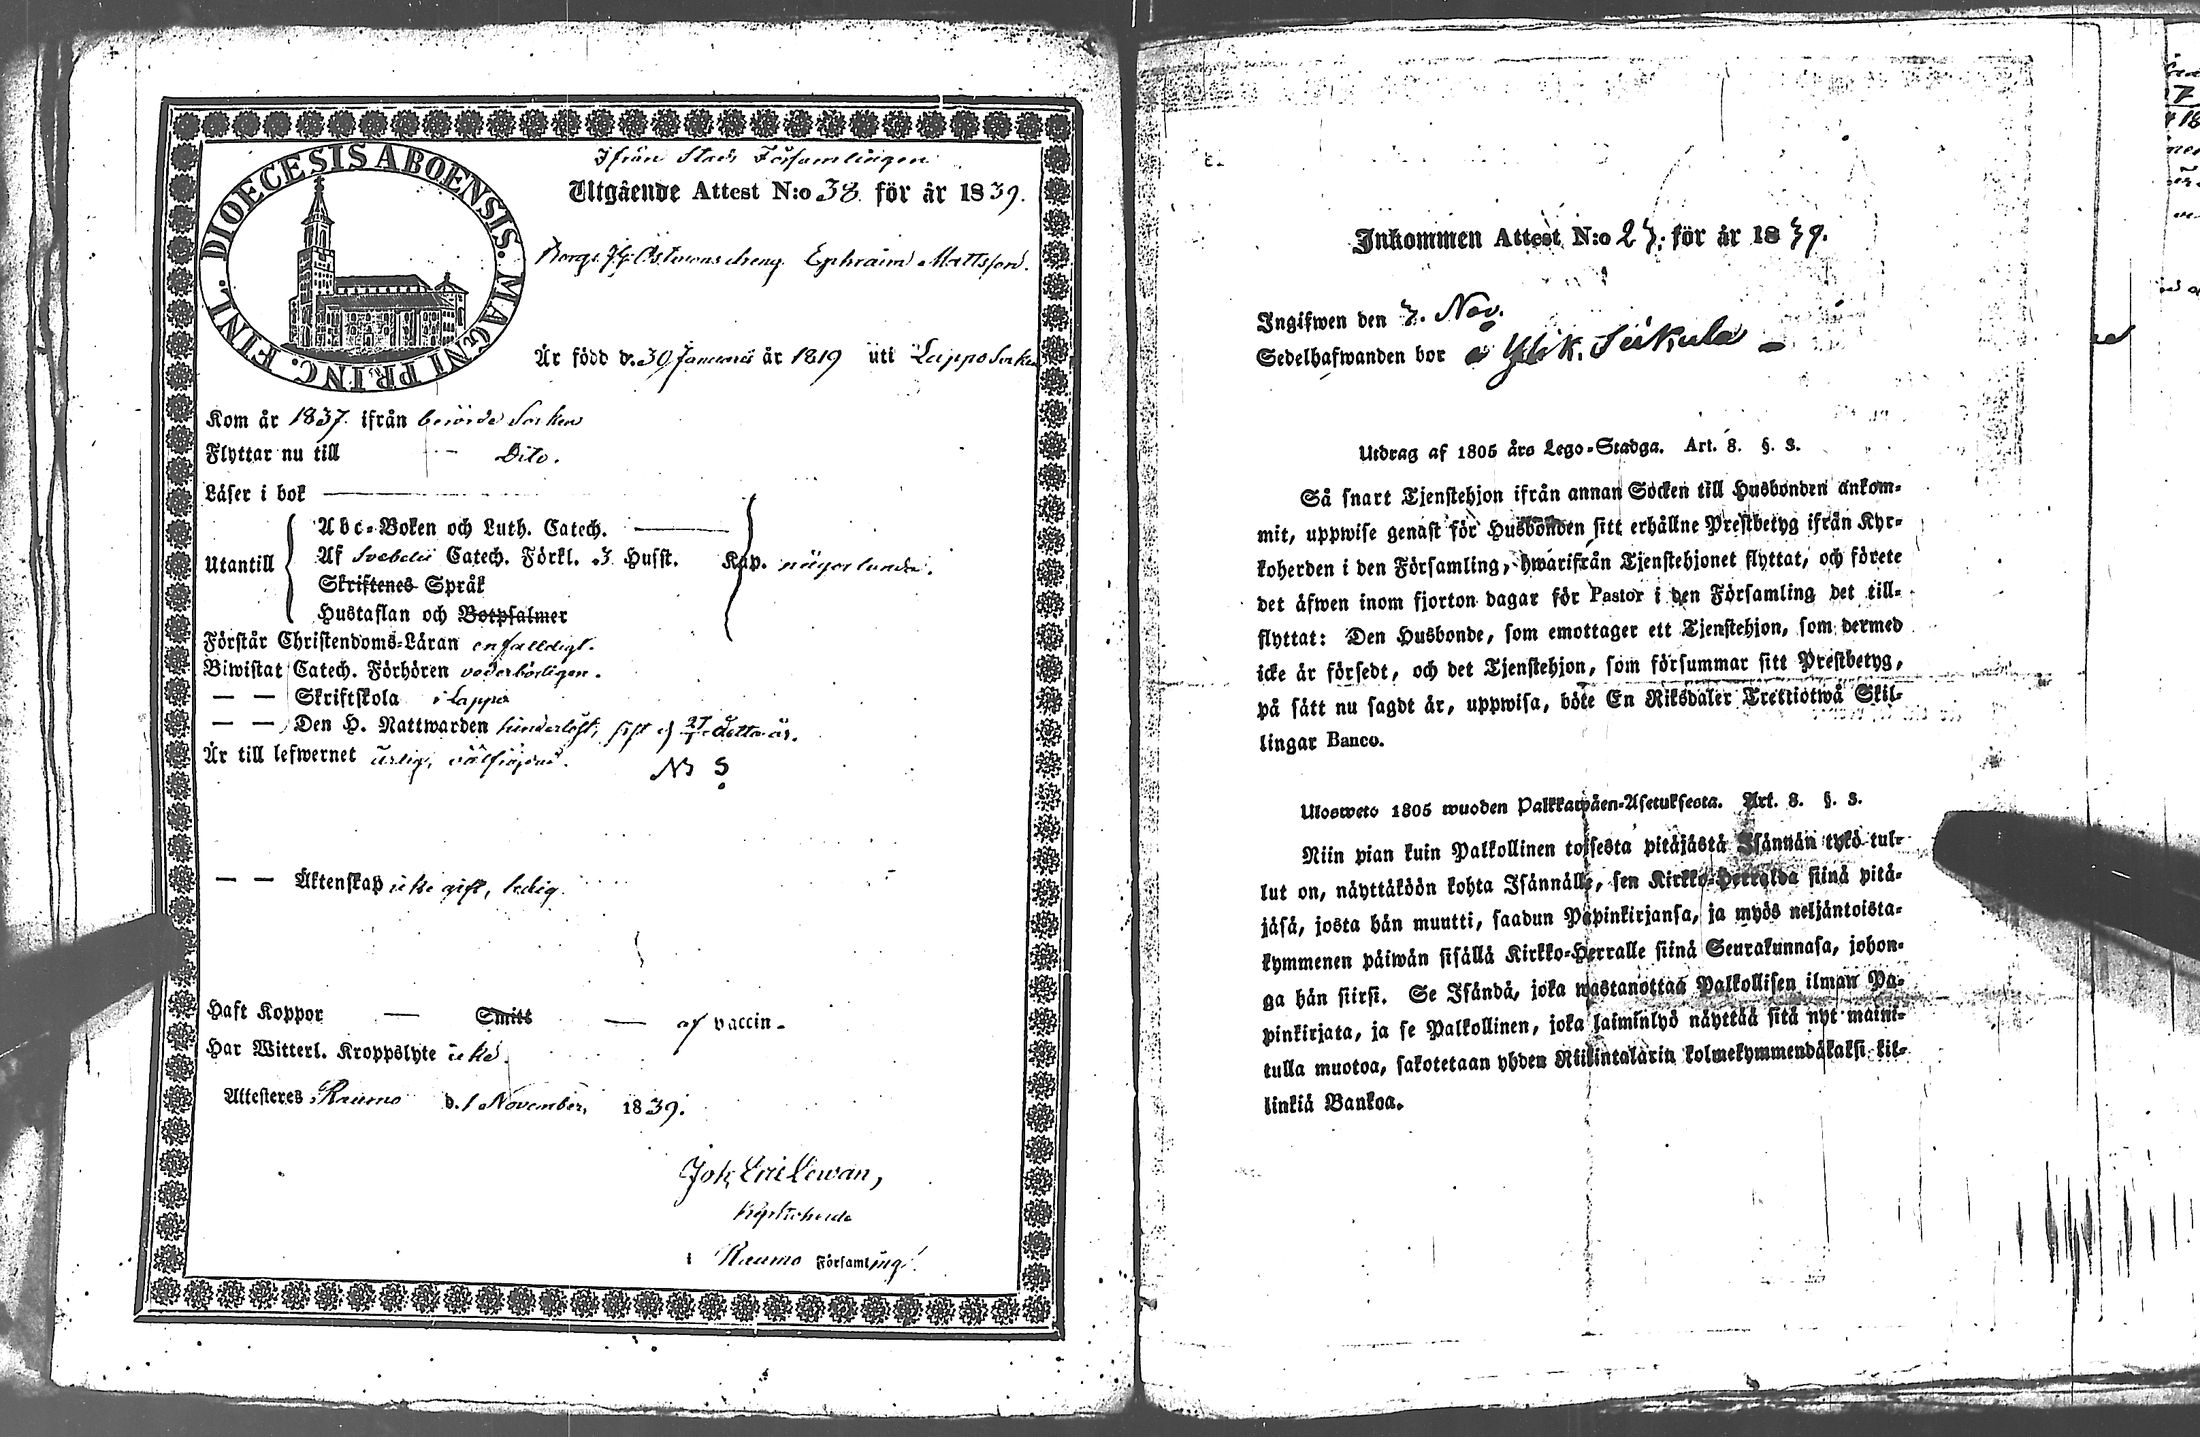 DIOECESIS ABOENSIS. MAGNI PRINC. FINL.
Ifrån Stads Församlingen
Utgående Attest N:o 38. för år 1839.
Ephraim Mattsson.
Är född d. 30 Januarii år 1819 uti Lappo Socken
Kom år 1837. ifrån berörde Socken
Flyttar nu till Dito.
Läser i bok
Utantill
Abc-Boken och Luth. Catech.
Af Svebelii Catech. Förkl. 3 Husst. Kap. någorlunda.
Skriftenes Språk
Hustaflan och Botpsalmer
Förstår Christendoms-Läran enfalldigt.
Biwistat Catech. Förhören vederbörligen.
— — Skriftskola i Lappo
— — Den H. Nattwarden hinderlöst, sist d. detta år.
Är till lefwernet ärlig, välfrejdad.
— — Äktenskap icke gift, ledig.
Haft Koppor — Smitt — af vaccin.
Har Witterl. Kroppslyte icke
Attesteres Raumo d. 1 November, 1839.
Kyrkoherde
i Raumo Församling.
Inkommen Attest N:o 27. för år 1839.
Ingifwen den 7. Nov.
Sedelhafwanden bor
Utdrag af 1805 års Lego-Stadga. Art. 8. §. 3.
Så snart Tjenstehjon ifrån annan Socken till Husbonden ankom-
mit, uppwise genast för Husbonden sitt erhållne Prestbetyg ifrån Kyr-
koherden i den Församling, hwarifrån Tjenstehjonet flyttat, och förete
det äfwen inom fjorton dagar för Pastor i den Församling det till-
flyttat: Den Husbonde, som emottager ett Tjenstehjon, som dermed
icke är försedt, och det Tjenstehjon, som försummar sitt Prestbetyg,
på sätt nu sagdt är, uppwisa, böte En Riksdaler Trettiotwå Skil-
lingar Banco.
Ulosweto 1805 wuoden Palkkawäen-Asetuksesta. Art. 8. §. 3.
Niin pian kuin Palkollinen toisesta pitäjästä Isännän tykö tul-
lut on, näyttäköön kohta Isännälle, sen Kirkko-Herralda siinä pitä-
jäsä, josta hän muutti, saadun Papinkirjansa, ja myös neljäntoista-
kymmenen päiwän sisällä Kirkko-Herralle siinä Seurakunnasa, johon-
ga hän siirsi. Se Isändä, joka wastanottaa Palkollisen ilman Pa-
pinkirjata, ja se Palkollinen, joka laiminlyö näyttää sitä nyt maini-
tulla muotoa, sakotetaan yhden Riikintalarin kolmekymmendäkaksi kil-
linkiä Bankoa.